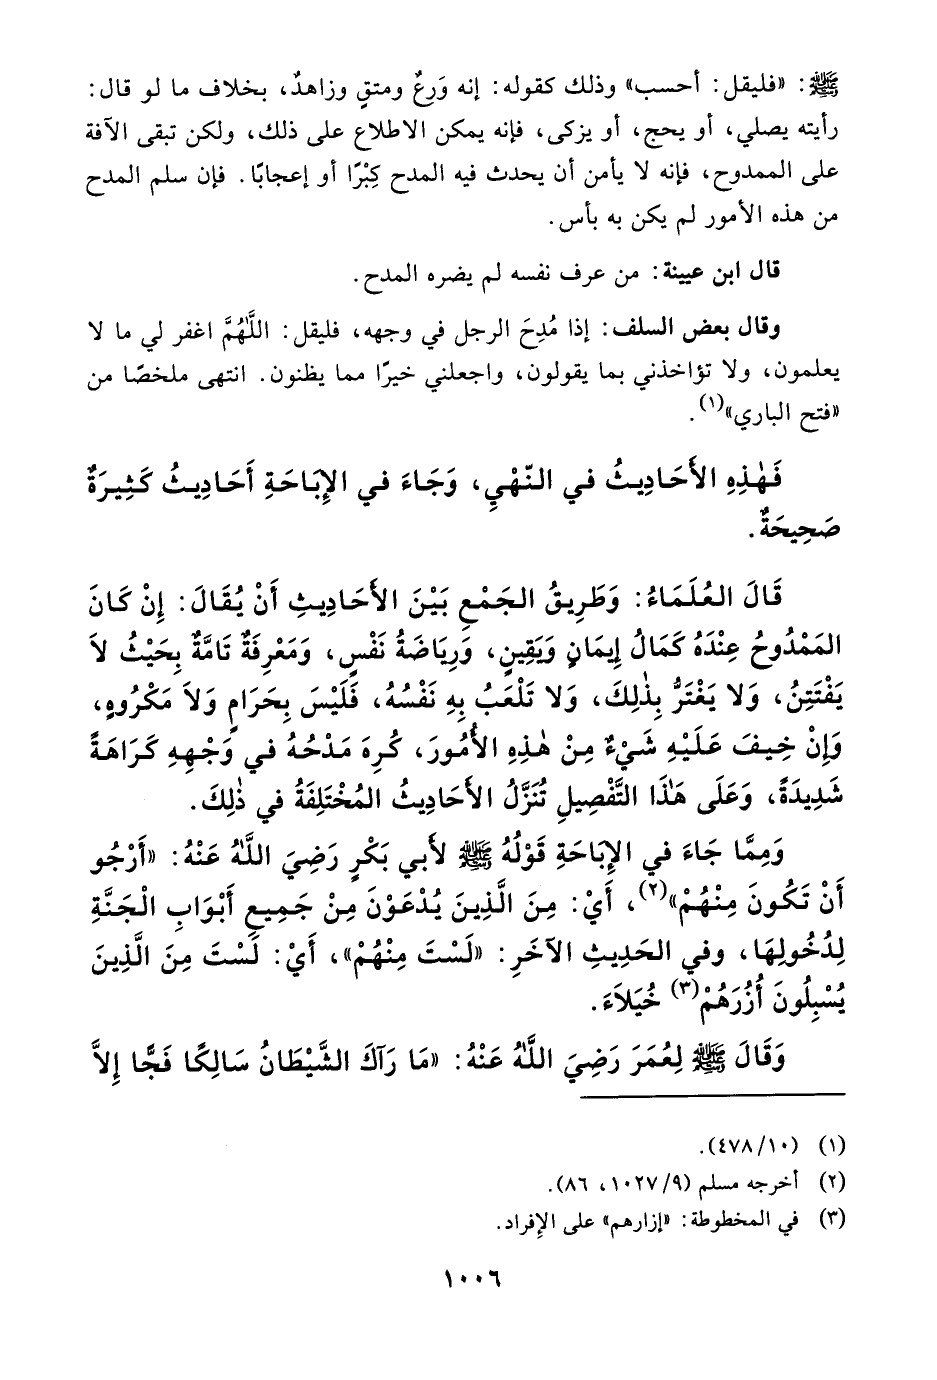 ﷺ: «فليقل: أحسب» وذلك كقوله: إنه وَرِعٌ ومتقٍ وزاهدٌ، بخلاف ما لو قال:
رأيته يصلي، أو يحج، أو يزكى، فإنه يمكن الاطلاع على ذلك، ولكن تبقى الآفة
على الممدوح، فإنه لا يأمن أن يحدث فيه المدح كِبْرًا أو إعجابًا. فإن سلم المدح
من هذه الأمور لم يكن به بأس.
قال ابن عيينة: من عرف نفسه لم يضره المدح.
وقال بعض السلف: إذا مُدِحَ الرجل في وجهه، فليقل: اللَّهُمَّ اغفر لي ما لا
يعلمون، ولا تؤاخذني بما يقولون، واجعلني خيرًا مما يظنون. انتهى ملخصًا من
«فتح الباري»(١).
فَهٰذِهِ الأَحَادِيثُ في النّهْيِ، وَجَاءَ في الإِبَاحَةِ أَحَادِيثُ كَثِيرَةٌ
صَحِيحَةٌ.
قَالَ العُلَمَاءُ: وَطَرِيقُ الجَمْعِ بَيْنَ الأَحَادِيثِ أَنْ يُقَالَ: إِنْ كَانَ
المَمْدُوحُ عِنْدَهُ كَمَالُ إِيمَانٍ وَيَقِينٍ، وَرِيَاضَةُ نَفْسٍ، وَمَعْرِفَةٌ تَامَّةٌ بِحَيْثُ لاَ
يَفْتَتِنُ، وَلا يَغْتَرُّ بِذٰلِكَ، وَلا تَلْعَبُ بِهِ نَفْسُهُ، فَلَيْسَ بِحَرَامٍ وَلاَ مَكْرُوهٍ،
وَإِنْ خِيفَ عَلَيْهِ شَيْءٌ مِنْ هٰذِهِ الأُمُورَ، كُرِهَ مَدْحُهُ في وَجْهِهِ كَرَاهَةً
شَدِيدَةً، وَعَلَى هَذَا التَّفْصِيلِ تُنَزَّلُ الأَحَادِيثُ المُخْتَلِفَةُ في ذٰلِكَ.
وَمِمَّا جَاءَ في الإِبَاحَةِ قَوْلُهُ ﷺ لأَبي بَكْرٍ رَضِيَ اللَّهُ عَنْهُ: «أَرْجُو
أَنْ تَكُونَ مِنْهُمْ»(٢)، أَيْ: مِنَ الَّذِينَ يُدْعَوْنَ مِنْ جَمِيعِ أَبْوَابِ الْجَنَّةِ
لِدُخُولِهَا، وفي الحَدِيثِ الآخَرِ: «لَسْتَ مِنْهُمْ»، أَيْ: لَسْتَ مِنَ الَّذِينَ
يُسْبِلُونَ أُزُرَهُمْ(٣) خُيَلاَءَ.
وَقَالَ ﷺ لِعُمَرَ رَضِيَ اللَّهُ عَنْهُ: «مَا رَآكَ الشَّيْطَانُ سَالِكًا فَجًّا إِلاَّ
(١) (١٠/ ٤٧٨).
(٢) أخرجه مسلم (٩/ ١٠٢٧، ٨٦).
(٣) في المخطوطة: «إزارهم» على الإِفراد.
١٠٠٦